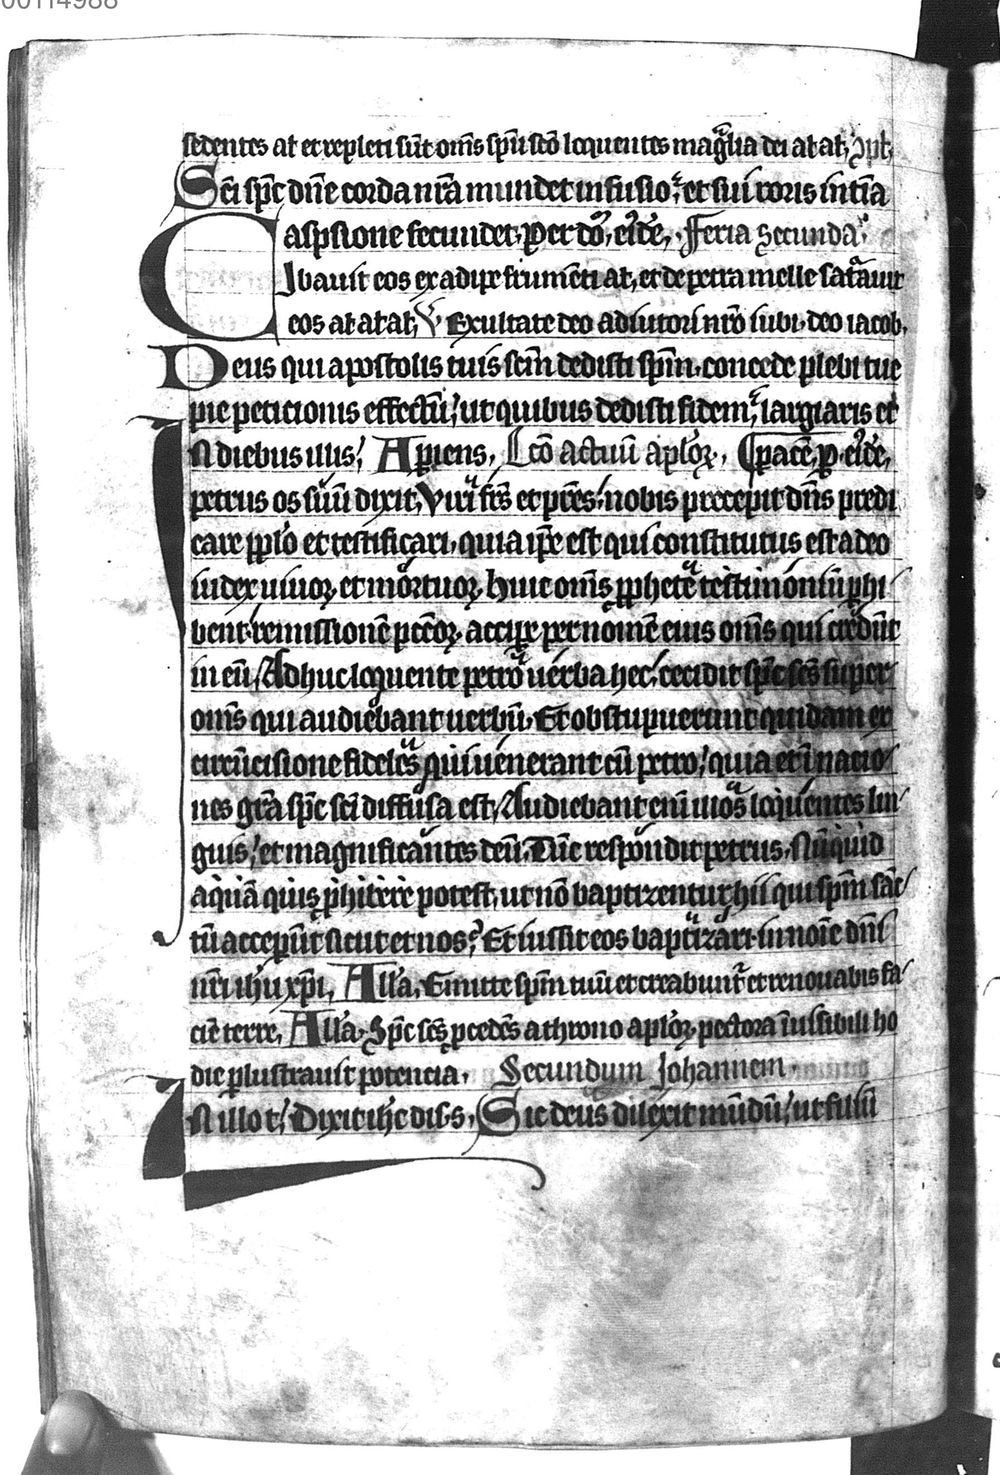 00114988
sedentes at et repleti sūt om̄s spū sc̄o loquentes mag̃lia dei at at, ꝯpl,
Sc̄i sp̄c dn̄e corda nr̃a mundet infusio, et sui roris intīa
aspsione fecundet, per dō, eiꝰdē, Feria secunda,
Cibauit eos ex adipe frumēti at, et de petra melle sat̃auit
eos at at at, V Exultate deo adiutori nr̃o iubi, deo iacob,
Deus qui apostolis tuis scm̄ dedisti spm̄, concede plebi tue
pie peticionis effectū, ut quibus dedisti fidem, largiaris et
pacē, ꝑ, eiꝰdē,
In diebus illis, Aꝑiens, Lc̄o actuū apl̄oꝝ,
petrus os suū dixit, Viri fr̄s et pr̄es, nobis precepit dn̄s predi
care pplo et testificari, quia ip̄e est qui constitutus est a deo
iudex uiuoꝝ et mortuoꝝ, huic om̄s ꝓphete testimoniū ꝑhi
bent, remissionē pc̄c̄oꝝ accipe per nomē eius om̄s qui credūt
in eū, Adhuc loquente petro uerba hec, cecidit sp̄c sc̄s super
om̄s qui audiebant uerbū, Et obstupuerunt quidam ex
circūcisione fideles qui uenerant cū petro, quia et ī nacio
nes gr̃a sp̄c sc̄i diffusa est, Audiebant enī illos loquentes lin
guis, et magnificantes deū, Tūc respondit petrus, Nūquid
aquā quis ꝓhibere potest, ut nō baptizentur hii qui spm̄ sāc
tū acceperūt sicut et nos, Et iussit eos baptizari in noīe dn̄i
nr̃i ihu xp̄i, All̄a, Emitte spm̄ tuū et creabunt̃ et renouabis fa
ciē terre, All̄a, Sp̄c sc̄s ꝓcedēs a throno apl̄oꝝ pectora īuisibili ho
die ꝑlustrauit potencia, Secundum Johannem,
In illo t, Dixit ihc dis s, Sic deus dilexit mūdū, ut filiū